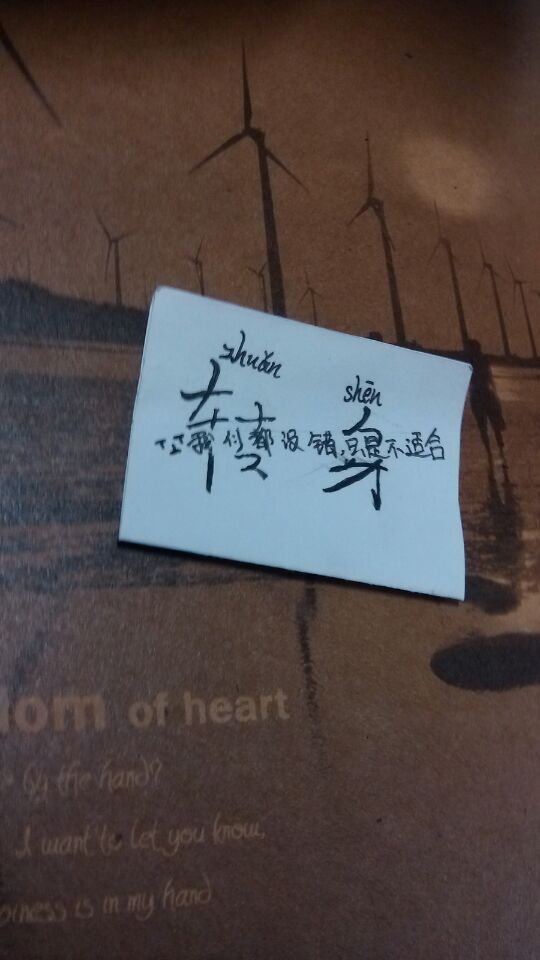 zhuǎn shēn
转身
我们都没错,只是不适合
of heart
by the hand?
I want to let you know,
is in my hand